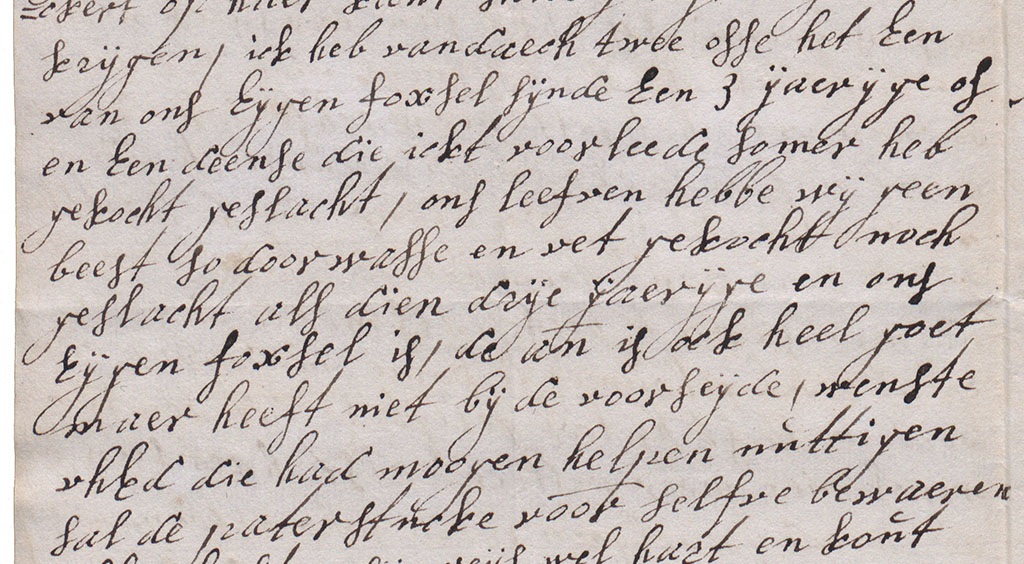 op haer
krijgen, ick heb vandaech twee osse het Een
van ons Eijgen foxsel sijnde Een 3 ijaerijge os
en Een deense die ickt voorleede somer heb
gekocht geslacht, ons leefven hebbe wij geen
beest so doorwasse en vet gekocht noch
geslacht als dien drije ijaerijge en ons
Eijgen foxsel is, de an is ock heel goet
maer heeft niet bij de voorseijde, wenste
vhEd die had moogen helpen nuttigen
sal de paterstucke voor selfve bewaeren
wel hart en kout